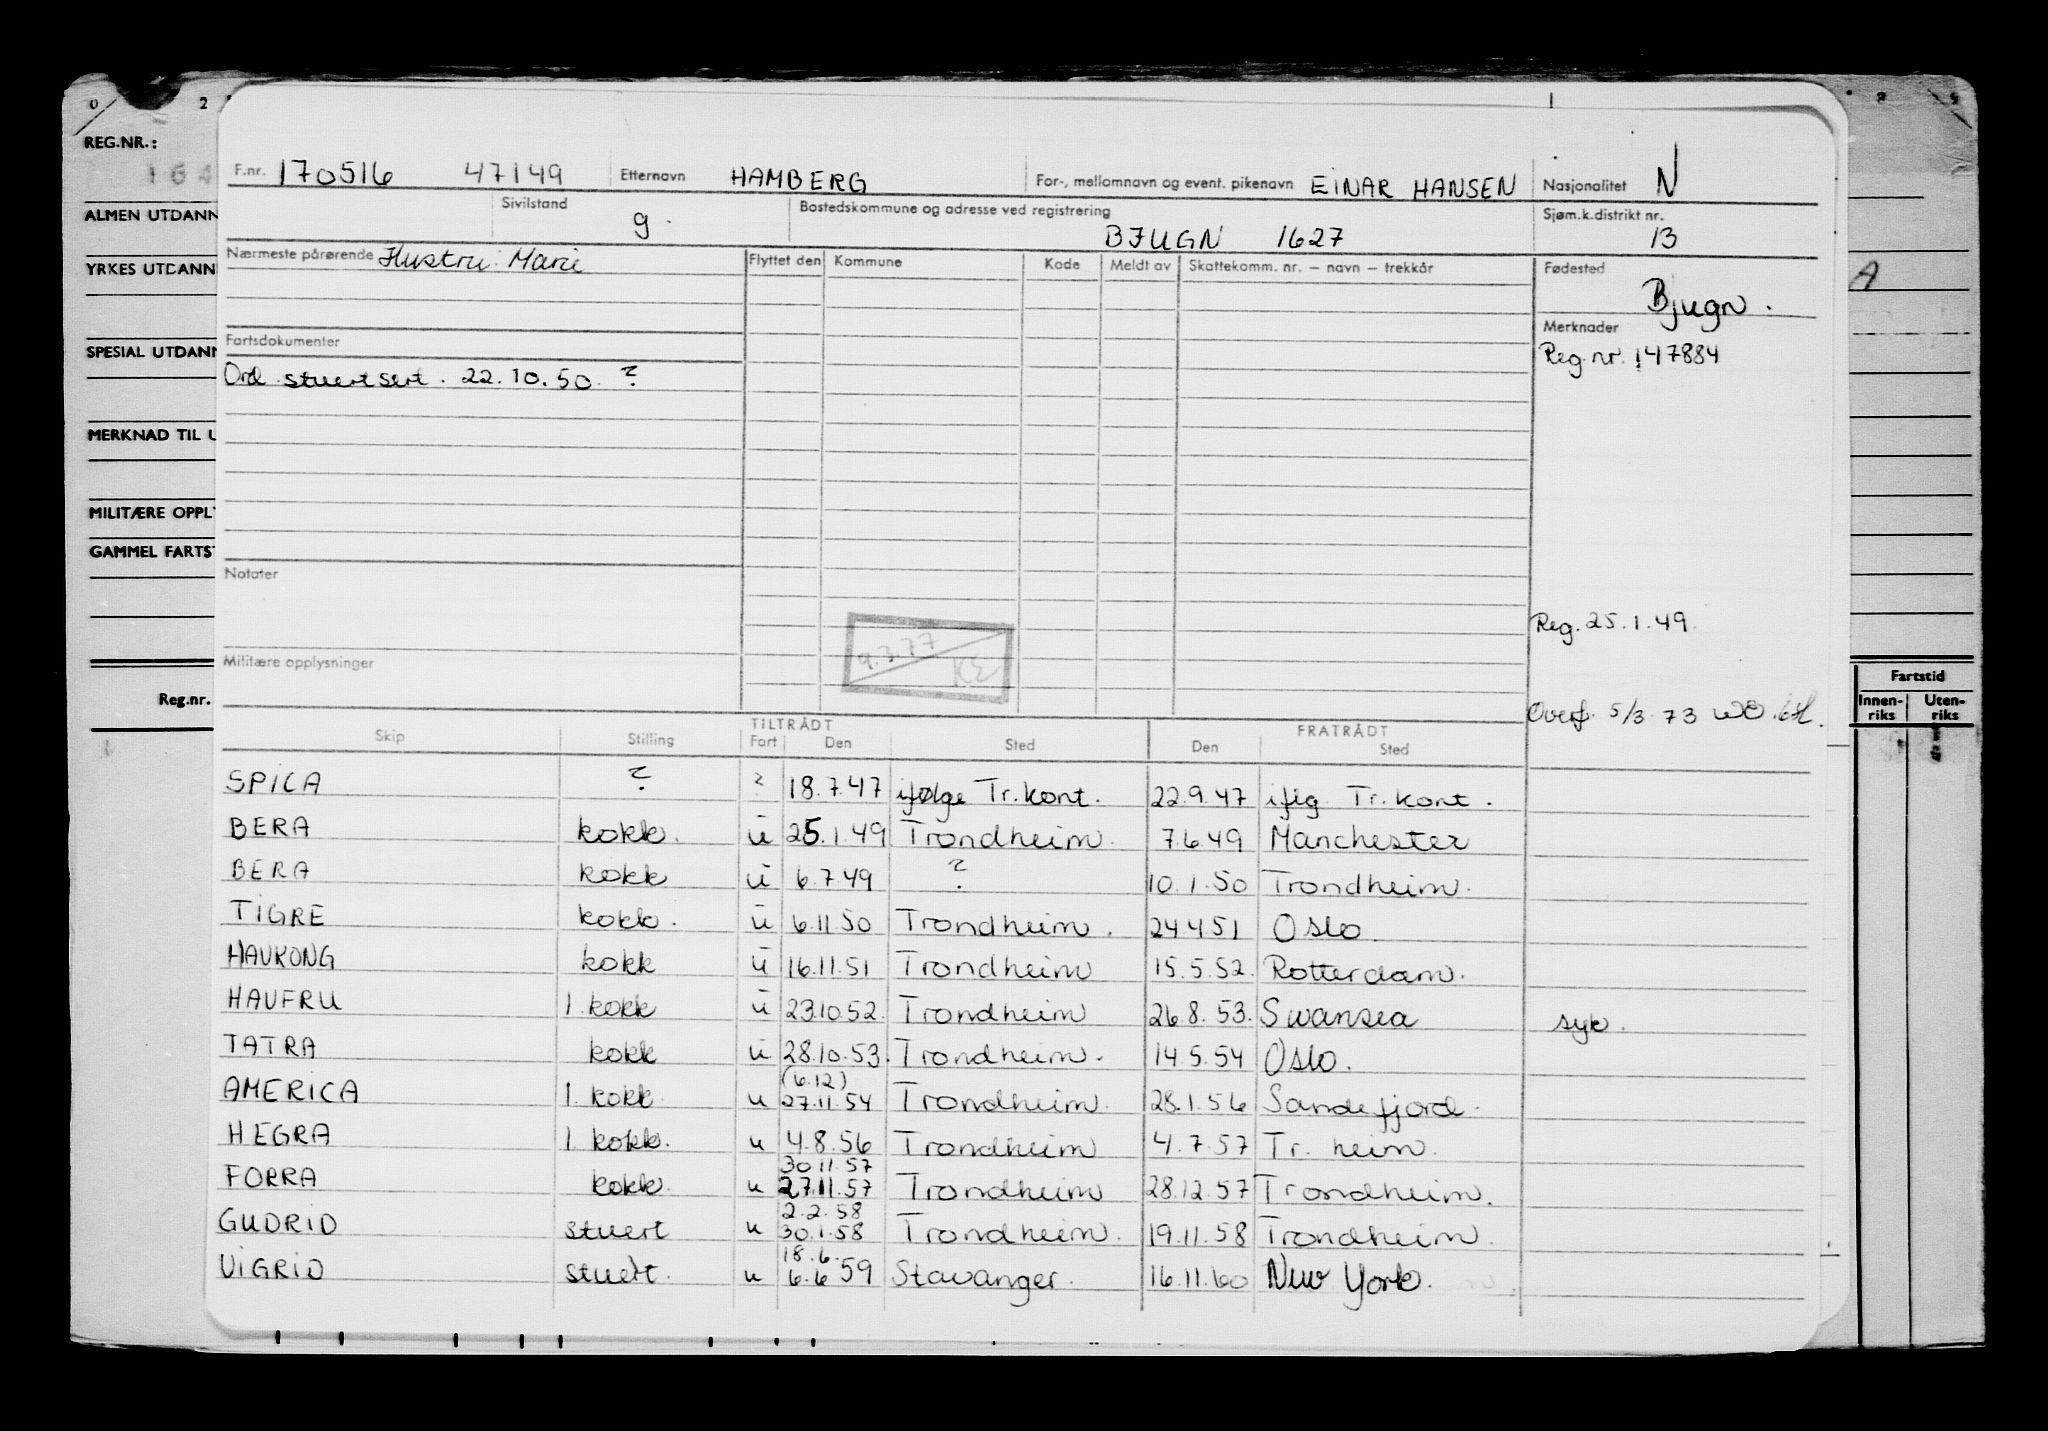 0 2
REG.NR.:
ALMEN UTDANN
YRKES UTDANN
SPESIAL UTDANN
MERKNAD TIL U
MILITÆRE OPPL
GAMMEL FARTST
Reg.nr.
F.nr. 170516 47149 Etternavn HAMBERG For-, mellomnavn og event. pikenavn EINAR HANSEN Nasjonalitet N
Sivilstand g. Bostedskommune og adresse ved registrering BJUGN 1627 Sjøm.k.distrikt nr. 13
Nærmeste pårørende Hustru: Marie Flyttet den Kommune Kode Meldt av Skattekomm. nr. – navn – trekkår Fødested
Bjugn.
Fartsdokumenter Merknader
Reg.nr. 147884
Ord. stuertsert. 22.10.50 ?
Notater
Reg. 25.1.49.
9.3.77 KE
Militære opplysninger
Overf. 5/3.73 WO
Fartstid
Innen-riks Uten-riks
TILTRÅDT FRATRÅDT
Skip Stilling Fart Den Sted Den Sted
SPICA ? ? 18.7.47 ifølge Tr.kont. 22.9.47 iflg Tr.kont.
BERA kokk. u 25.1.49 Trondheim. 7.6.49 Manchester
BERA kokk u 6.7.49 ? 10.1.50 Trondheim.
TIGRE kokk. u 6.11.50 Trondheim. 24.4.51 Oslo.
HAVKONG kokk u 16.11.51 Trondheim 15.5.52. Rotterdam.
HAVFRU 1. kokk u 23.10.52. Trondheim 26.8.53. Swansea syk.
TATRA kokk u 28.10.53. Trondheim. 14.5.54 Oslo.
(6.12)
AMERICA 1. kokk. u 27.11.54 Trondheim. 28.1.56 Sandefjord.
HEGRA 1. kokk. u 4.8.56 Trondheim 4.7.57 Tr. heim.
30.11.57
FORRA kokk. u 27.11.57 Trondheim 28.12.57 Trondheim.
2.2.58
GUDRID stuert u 30.1.58 Trondheim. 19.11.58 Trondheim.
18.6.
VIGRID stuert. u 6.6 59 Stavanger. 16.11.60 New York.